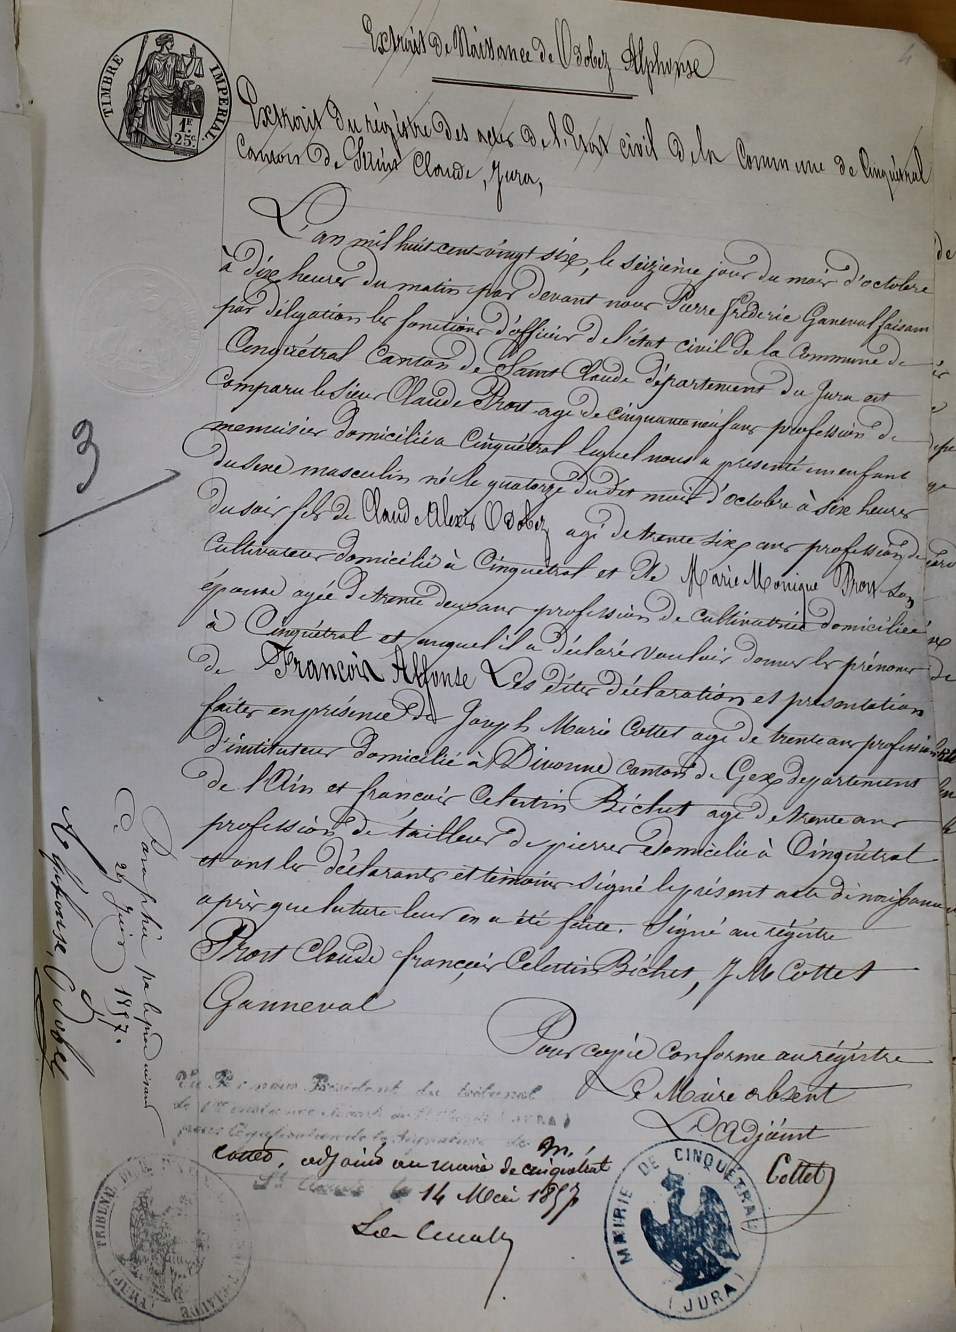 4
Extrait de Naissance de Odobez Alphonse
TIMBRE IMPERIAL
1F.
25c
Extrait du régistre des actes de l'Etat civil de la Commune de Cinquétral
Canton de Saint Claude, Jura,
L'an mil huit cent vingt six, le seizième jour du mois d'octobre
à dix heures du matin par devant nous Pierre Fréderic Ganeval faisant
par délégation les fonctions d'officier de l'état civil de la Commune de
Cinquétral Canton de Saint Claude département du Jura est
comparu le sieur Claude Prost agé de cinquante neuf ans profession de
menuisier domicilié à Cinquétral lequel nous a présenté un enfant
du sexe masculin né le quatorze du dit mois d'octobre à six heures
du soir fils de Claud Alexis Odobez agé de trente six ans profession de
cultivateur domicilié à Cinquétral et de Marie Monique Prost son
épouse agée de trente deux ans profession de cultivatrice domiciliée
à Cinquétral et auquel il a déclaré vouloir donner les prénoms
de François Alfonse Les dites déclaration et présentation
faites en présence de Joseph Marie Cottet agé de trente ans profession
d'instituteur domicilié à Divonne canton de Gex département
de l'Ain et francois Celestin Béchet agé de trente ans
profession de tailleur de pierres domicilié à Cinquétral
et ont les déclarants et témoins signé le présent acte de naissance
après que lecture leur en a été faite. Signé au régistre
Prost Claude françois Celestin Béchet, J M Cottet
Ganneval
Pour copie conforme au régistre
Le Maire absent
L'Adjoint
Cottet
3
Paraphé par le
Ce 29 Juin 1857.
Alphonse, Odobez
Vu par nous Président du tribunal
de 1re instance séant à St Claude (JURA)
pour légalisation de la signature de M.
Cottet, adjoint au maire de cinquétral
St Claude le 14 Mai 1857
MAIRIE DE CINQUÉTRAL
(JURA)